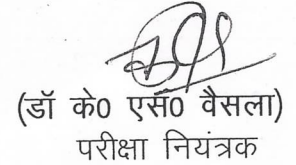 (डॉ के0 एस0 वैसला)
परीक्षा नियंत्रक